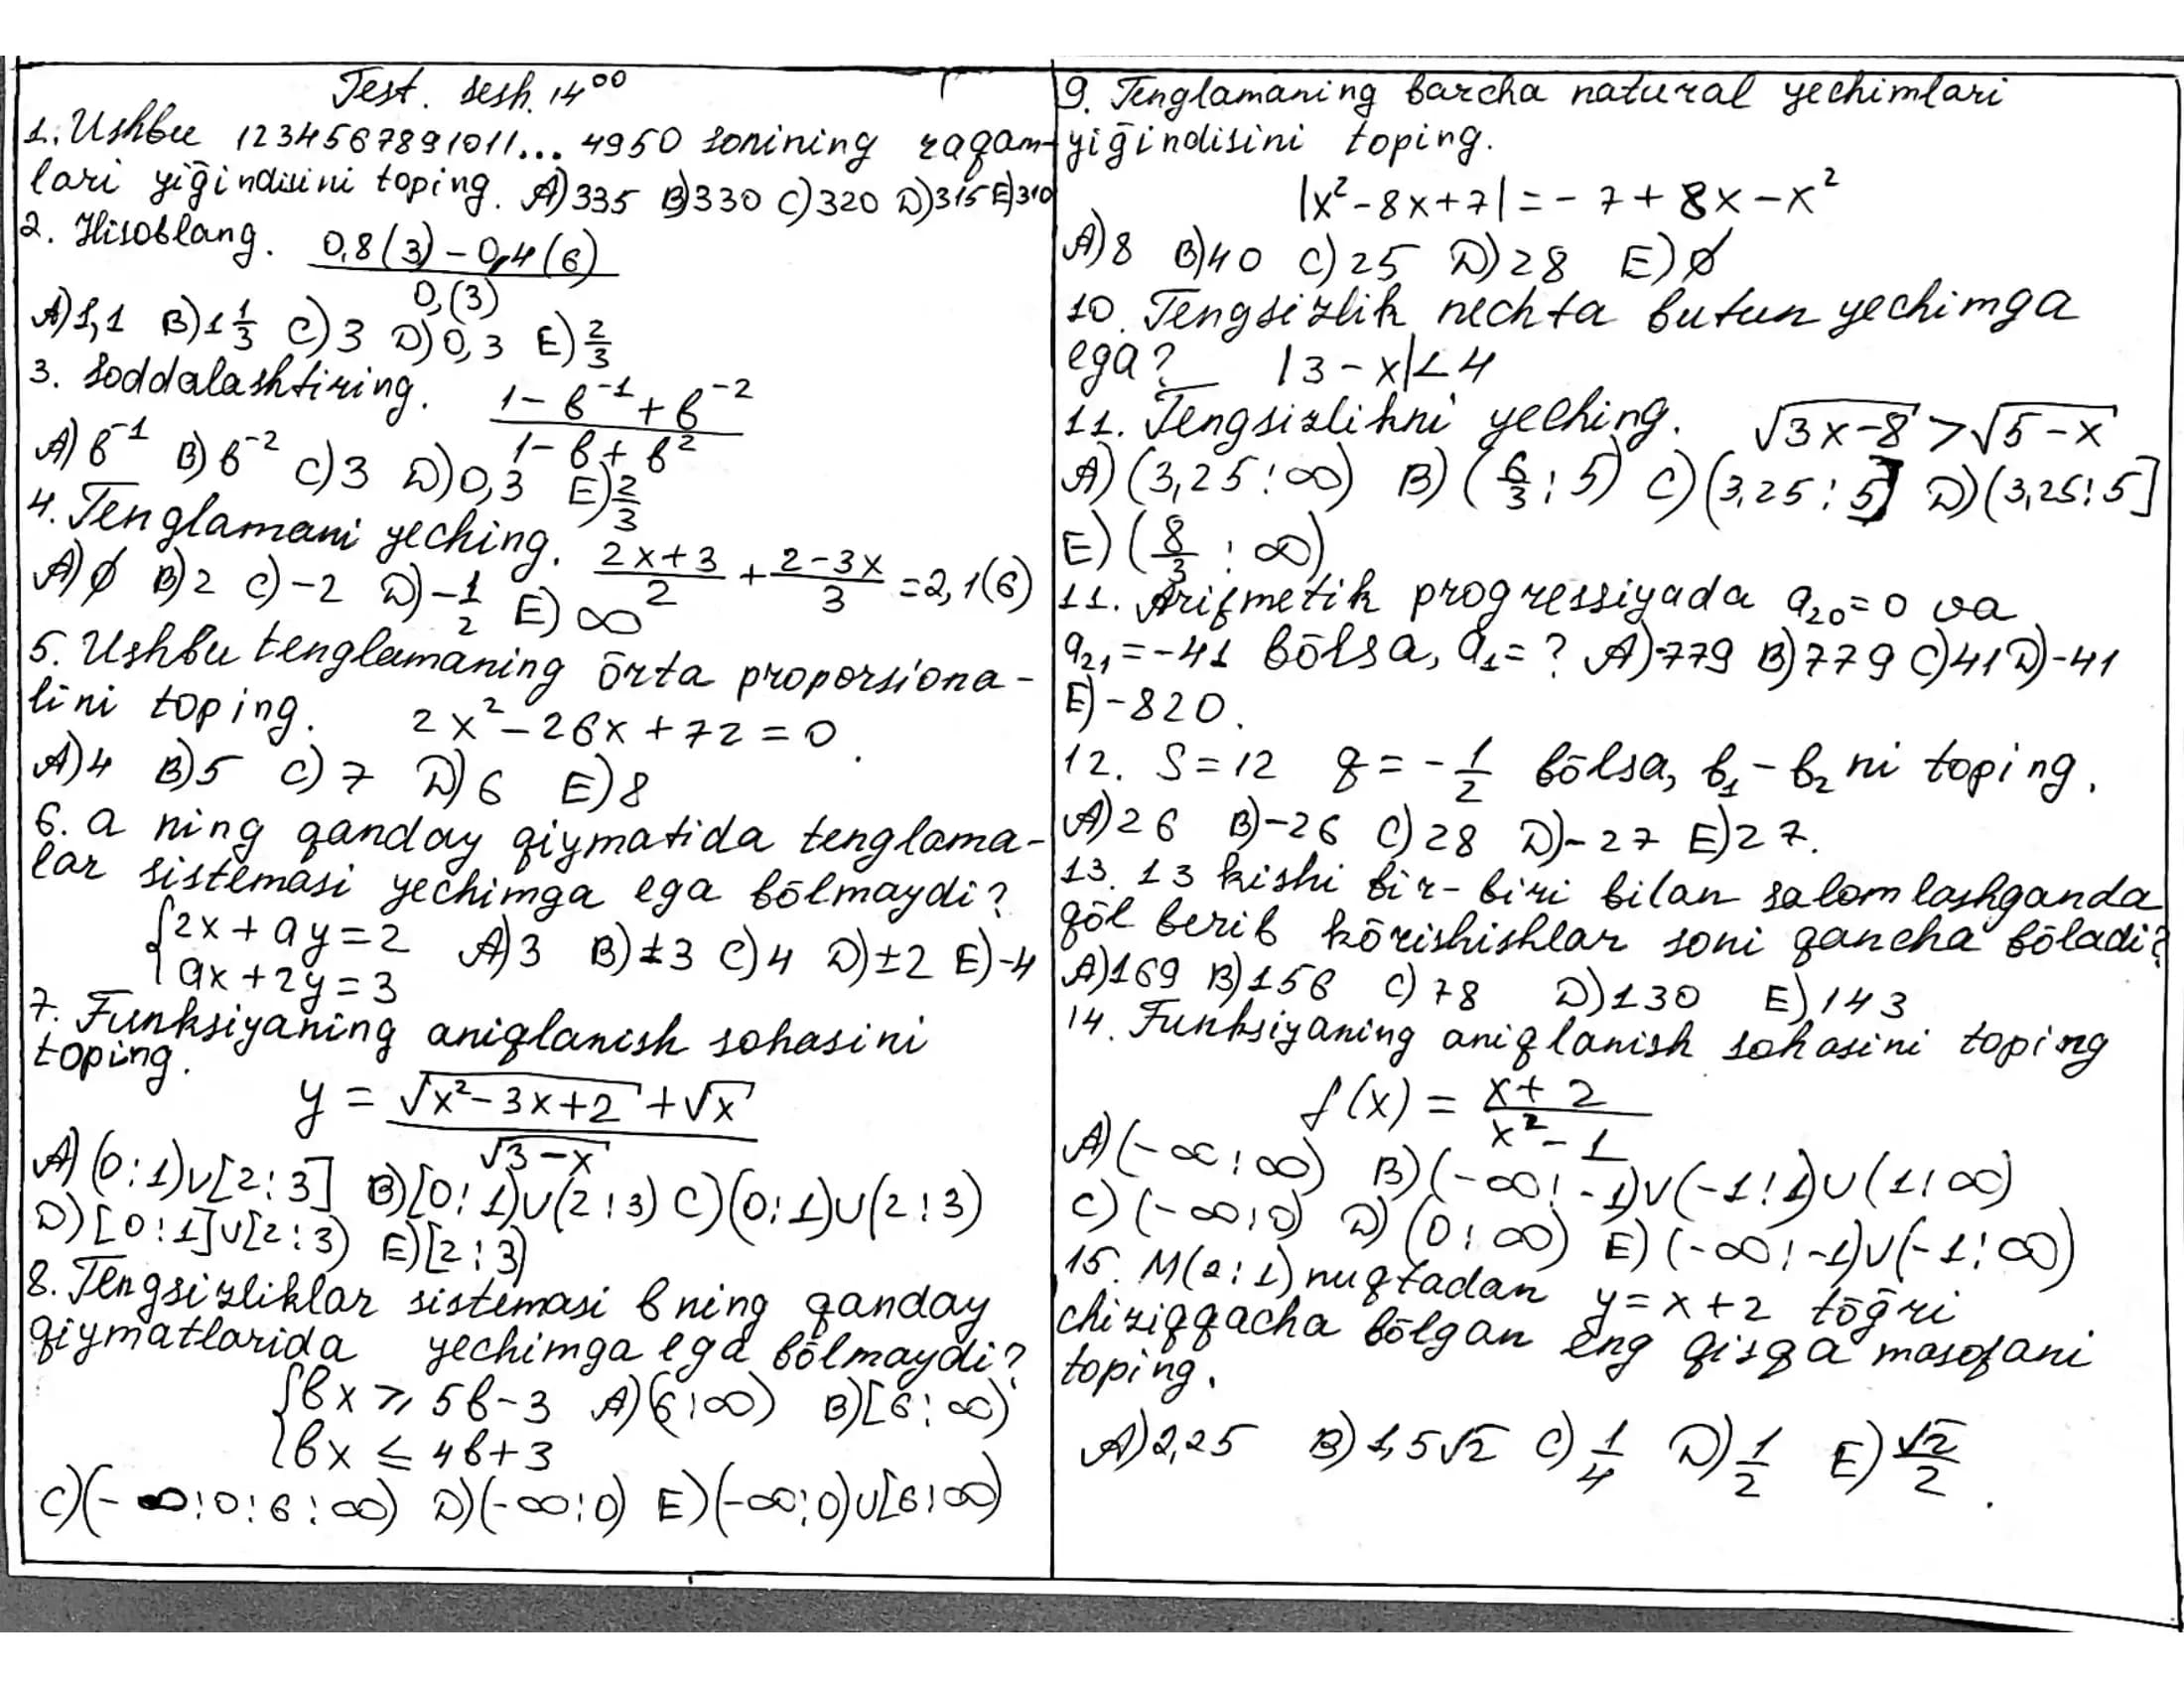 Test. sesh. 14⁰⁰
1. Ushbu 1234567891011... 4950 sonining raqam-
lari yiḡindisini toping. A) 335 B) 330 C) 320 D) 315 E) 310
2. Hisoblang. (0,8(3) - 0,4(6)) / 0,(3)
A) 1,1 B) 1 1/3 C) 3 D) 0,3 E) 2/3
3. Soddalashtiring. (1 - b⁻¹ + b⁻²) / (1 - b + b²)
A) b⁻¹ B) b⁻² C) 3 D) 0,3 E) 2/3
4. Tenglamani yeching. (2x+3)/2 + (2-3x)/3 = 2,1(6)
A) ∅ B) 2 C) -2 D) -1/2 E) ∞
5. Ushbu tenglamaning ōrta proporsiona-
lini toping. 2x² - 26x + 72 = 0.
A) 4 B) 5 C) 7 D) 6 E) 8
6. a ning qanday qiymatida tenglama-
lar sistemasi yechimga ega bōlmaydi?
{2x + ay = 2 A) 3 B) ±3 C) 4 D) ±2 E) -4
{ax + 2y = 3
7. Funksiyaning aniqlanish sohasini
toping.
y = (√(x² - 3x + 2) + √x) / √(3 - x)
A) (0;1)∪[2;3] B) [0;1)∪(2;3) C) (0;1)∪(2;3)
D) [0;1]∪[2;3) E) [2;3)
8. Tengsizliklar sistemasi b ning qanday
qiymatlarida yechimga ega bōlmaydi?
{bx ⩾ 5b - 3 A) (6;∞) B) [6;∞)
{bx ≤ 4b + 3
C) (-∞;0;6;∞) D) (-∞;0) E) (-∞;0)∪[6;∞)
9. Tenglamaning barcha natural yechimlari
yiḡindisini toping.
|x² - 8x + 7| = -7 + 8x - x²
A) 8 B) 40 C) 25 D) 28 E) ∅
10. Tengsizlik nechta butun yechimga
ega? |3 - x| < 4
11. Tengsizlikni yeching. √(3x-8) > √(5-x)
A) (3,25;∞) B) (6/3;5) C) (3,25;5] D) (3,25;5]
E) (8/3;∞)
11. Arifmetik progressiyada a₂₀ = 0 va
a₂₁ = -41 bōlsa, a₁ = ? A) -779 B) 779 C) 41 D) -41
E) -820.
12. S = 12 q = -1/2 bōlsa, b₁ - b₂ ni toping.
A) 26 B) -26 C) 28 D) -27 E) 27.
13. 13 kishi bir-biri bilan salomlashganda
qōl berib kōrishishlar soni qancha bōladi?
A) 169 B) 156 C) 78 D) 130 E) 143
14. Funksiyaning aniqlanish sohasini toping
f(x) = (x + 2) / (x² - 1)
A) (-∞;∞) B) (-∞;-1)∪(-1;1)∪(1;∞)
C) (-∞;0) D) (0;∞) E) (-∞;-1)∪(-1;∞)
15. M(2;1) nuqtadan y = x + 2 tōḡri
chiziqqacha bōlgan eng qisqa masofani
toping.
A) 2,25 B) 1,5√2 C) 1/4 D) 1/2 E) √2/2.